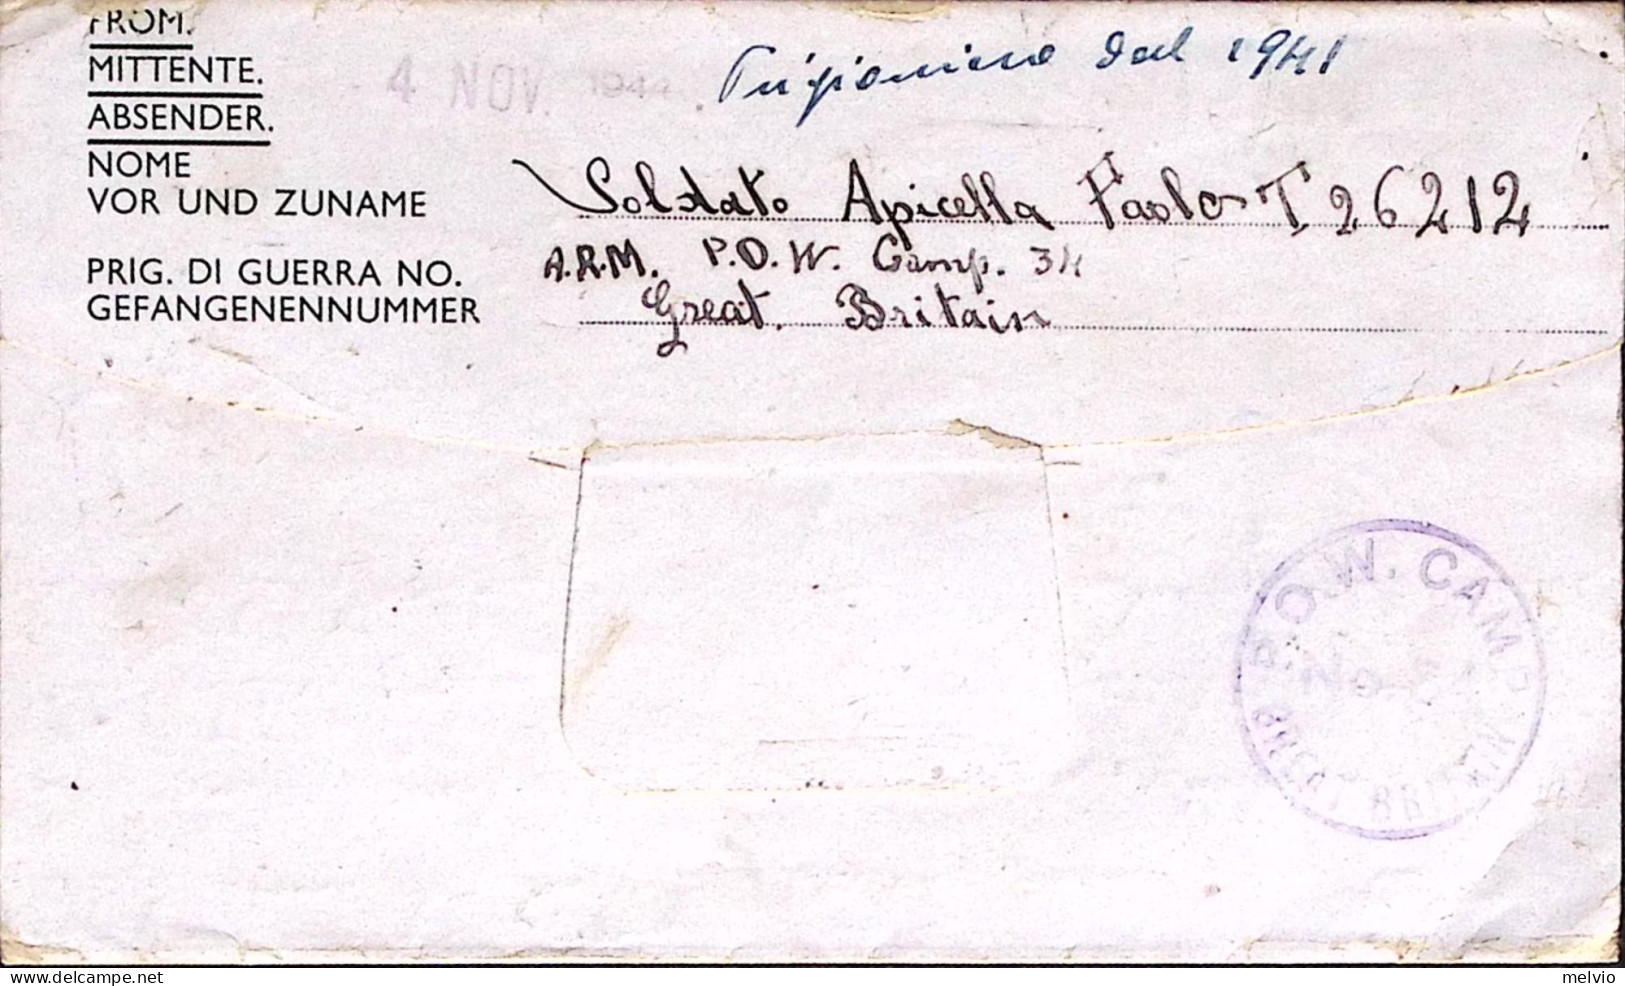 FROM.
MITTENTE.
ABSENDER.
4 NOV. 1944
Prigioniero dal 1941
NOME
VOR UND ZUNAME
Soldato Apicella Paolo T 26212
PRIG. DI GUERRA NO.
GEFANGENENNUMMER
A.R.M. P.O.W. Camp. 34
Great. Britain
P.O.W. CAMP
No.
GREAT BRITAIN
melvio